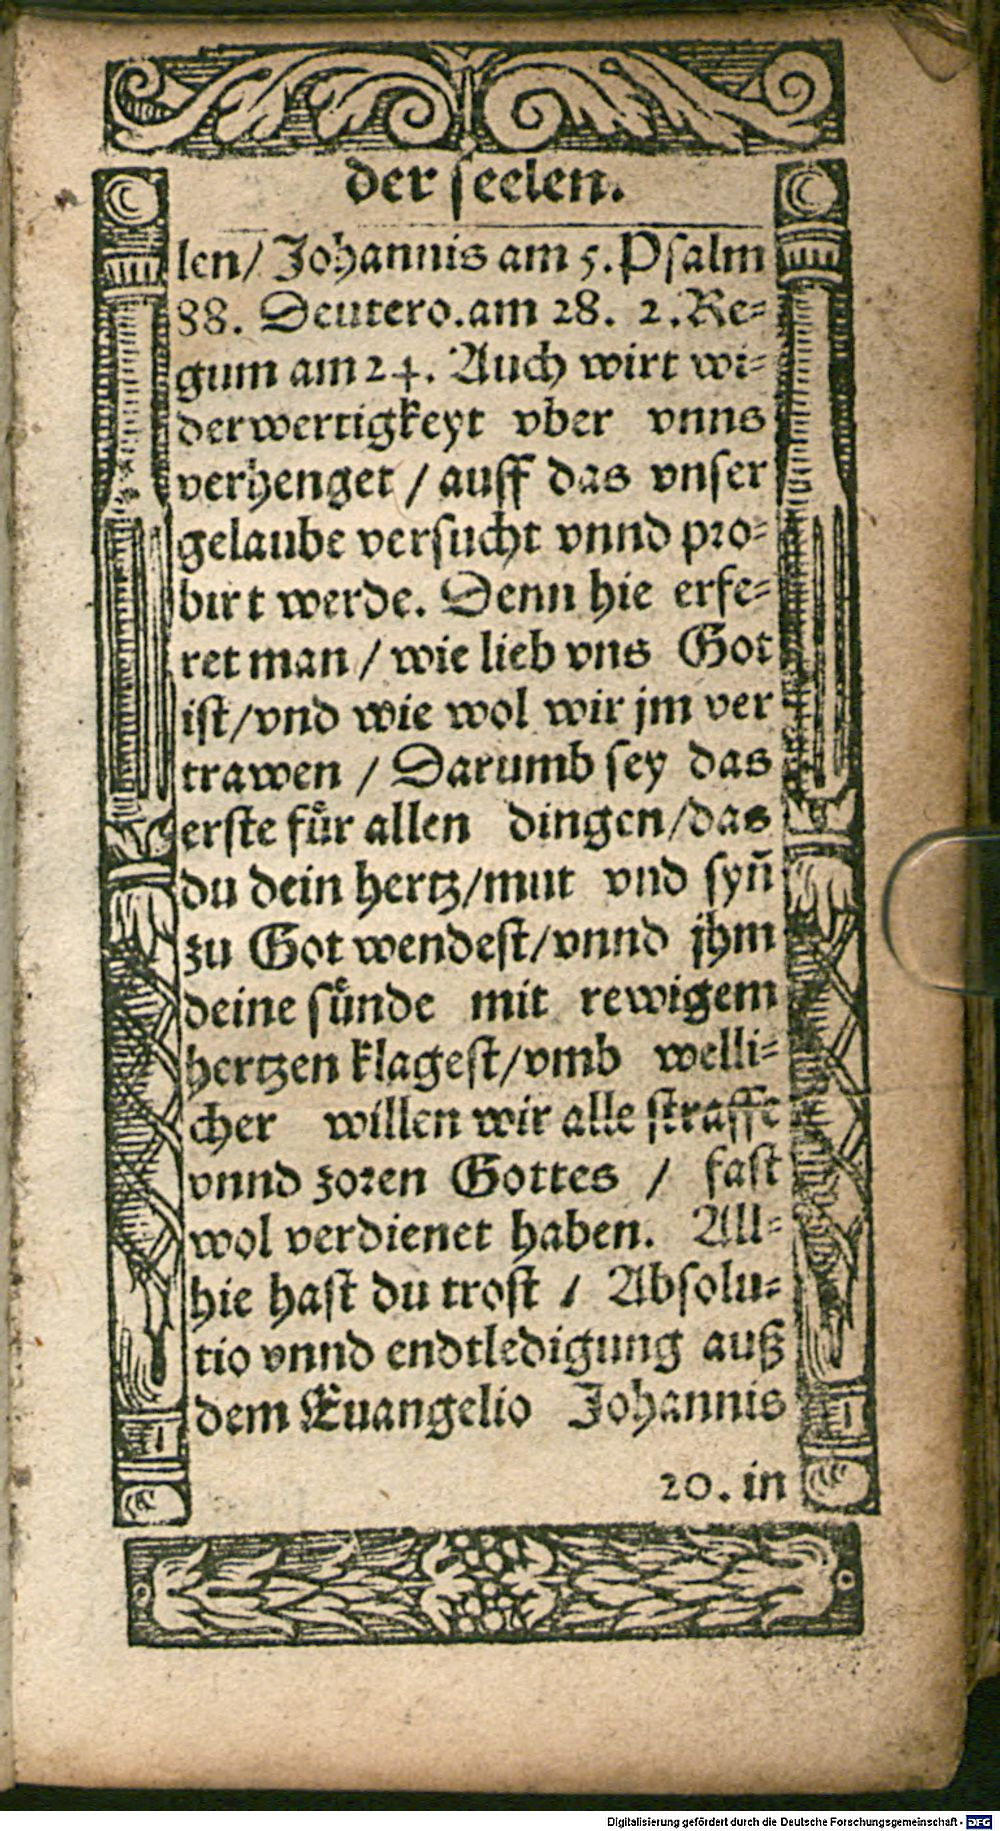 der seelen.
len/ Johannis am 5. Psalm
88. Deutero. am 28. 2. Re⸗
gum am 24. Auch wirt wi⸗
derwertigkeyt vber vnns
verhenget / auff das vnser
gelaube versucht vnnd pro⸗
birt werde. Denn hie erfe⸗
ret man / wie lieb vns Got
ist/vnd wie wol wir jm ver
trawen / Darumb sey das
erste fuͤr allen dingen/das
du dein hertz/mut vnd syn̄
zu Got wendest/vnnd jhm
deine suͤnde mit rewigem
hertzen klagest/vmb welli⸗
cher willen wir alle straffe
vnnd zoren Gottes / fast
wol verdienet haben. All⸗
hie hast du trost / Absolu⸗
tio vnnd endtledigung auß
dem Euangelio Johannis
20. in
Digitalisierung gefördert durch die Deutsche Forschungsgemeinschaft - DFG